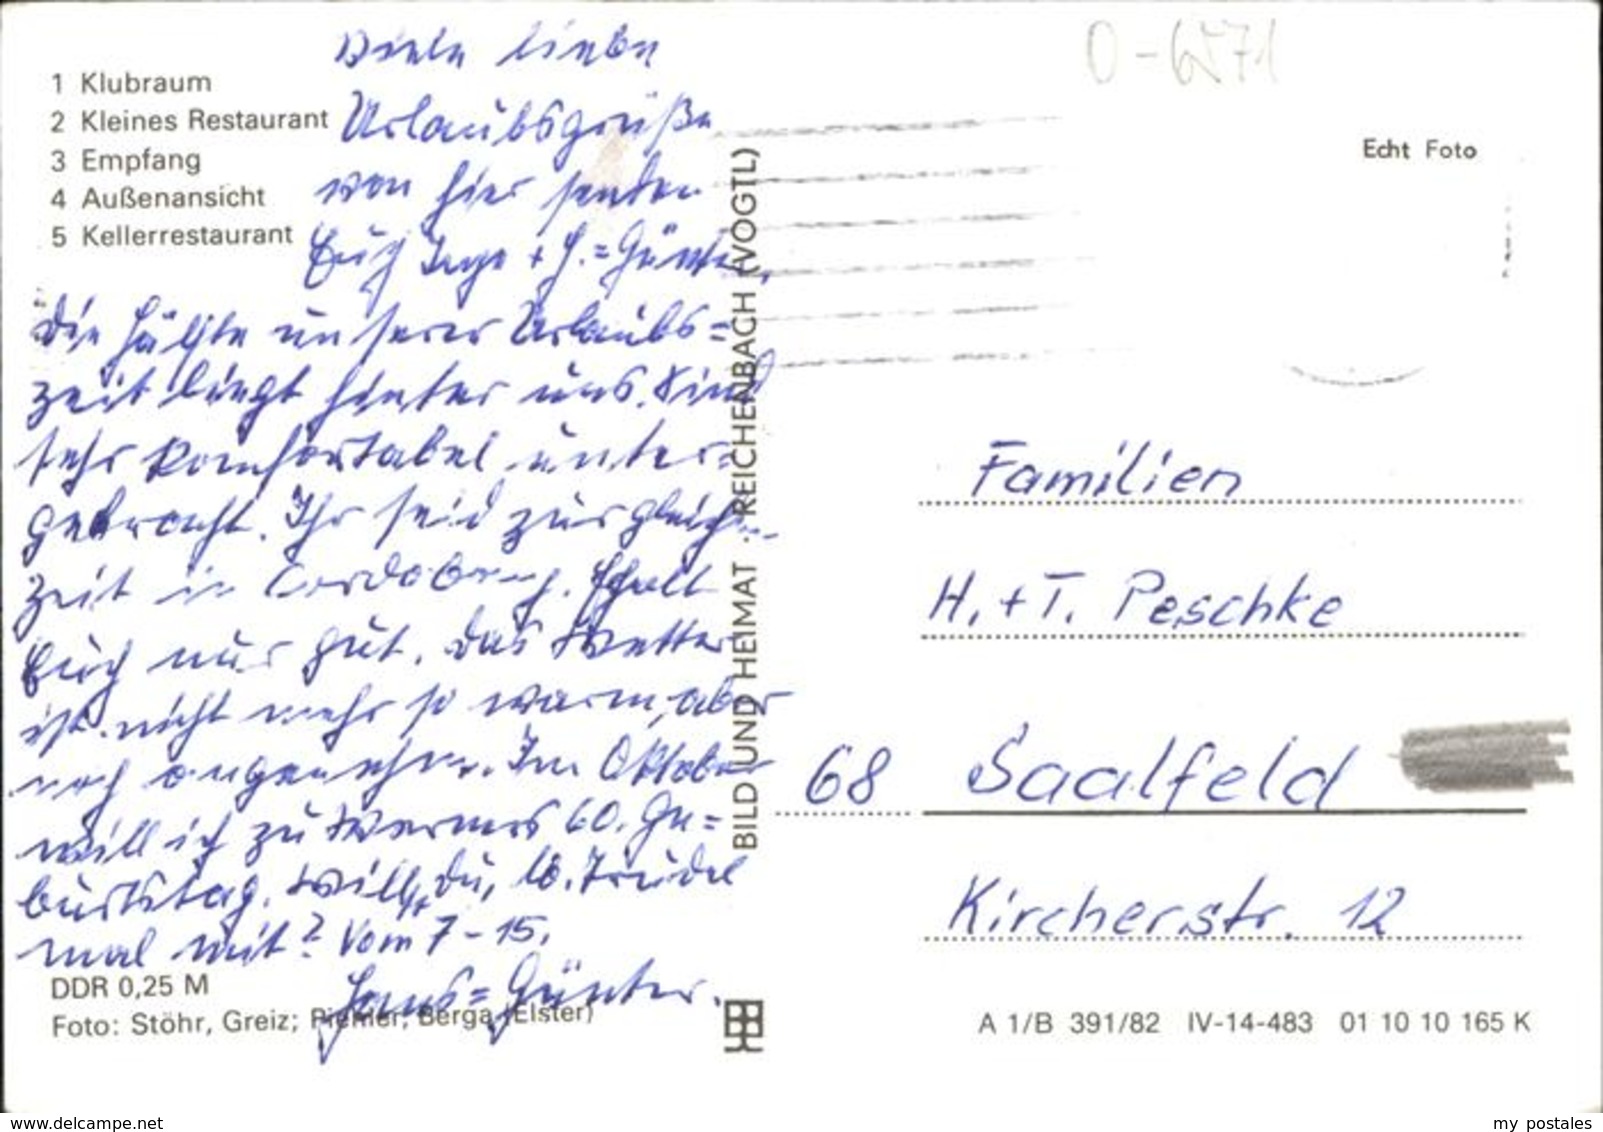 O-6571
1 Klubraum
2 Kleines Restaurant
3 Empfang
4 Außenansicht
5 Kellerrestaurant
Viele liebe
Urlaubsgrüße
von hier senden
Euch Inge + H.=Günter.
Die Hälfte unserer Urlaubs=
zeit liegt hinter uns. Sind
sehr komfortabel unter=
gebracht. Ihr seid zur gleichen
Zeit in Erholt
Euch nur gut. Das Wetter
ist nicht mehr so warm, aber
noch angenehm. Im Oktober
will ich zu Werners 60. Ge=
burtstag. Willst Du, lb. Trudel
mal mit? Vom 7-15.
Hans=Günter.
DDR 0,25 M
Foto: Stöhr, Greiz; Piehler, Berga (Elster)
BILD UND HEIMAT · REICHENBACH (VOGTL)
Echt Foto
Familien
H. + T. Peschke
68 Saalfeld
Kircherstr. 12
A 1/B 391/82 IV-14-483 01 10 10 165 K
www.delcampe.net
my postales